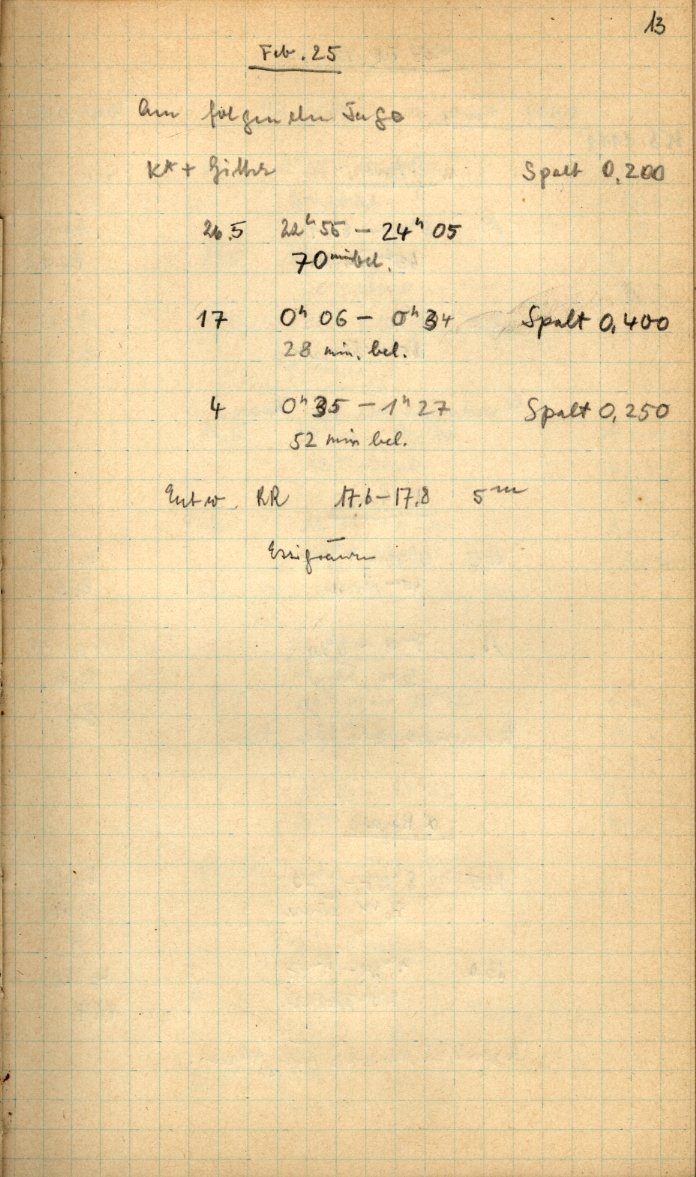 13
Feb. 25
Am folgenden Tage
K* + Gitter Spalt 0,200
26.5 22h 55 – 24h 05
70 min bel.
17 0h 06 – 0h 34 Spalt 0,400
28 min. bel.
4 0h 35 – 1h 27 Spalt 0,250
52 min bel.
Entw. RR 17,6–17,8 5m